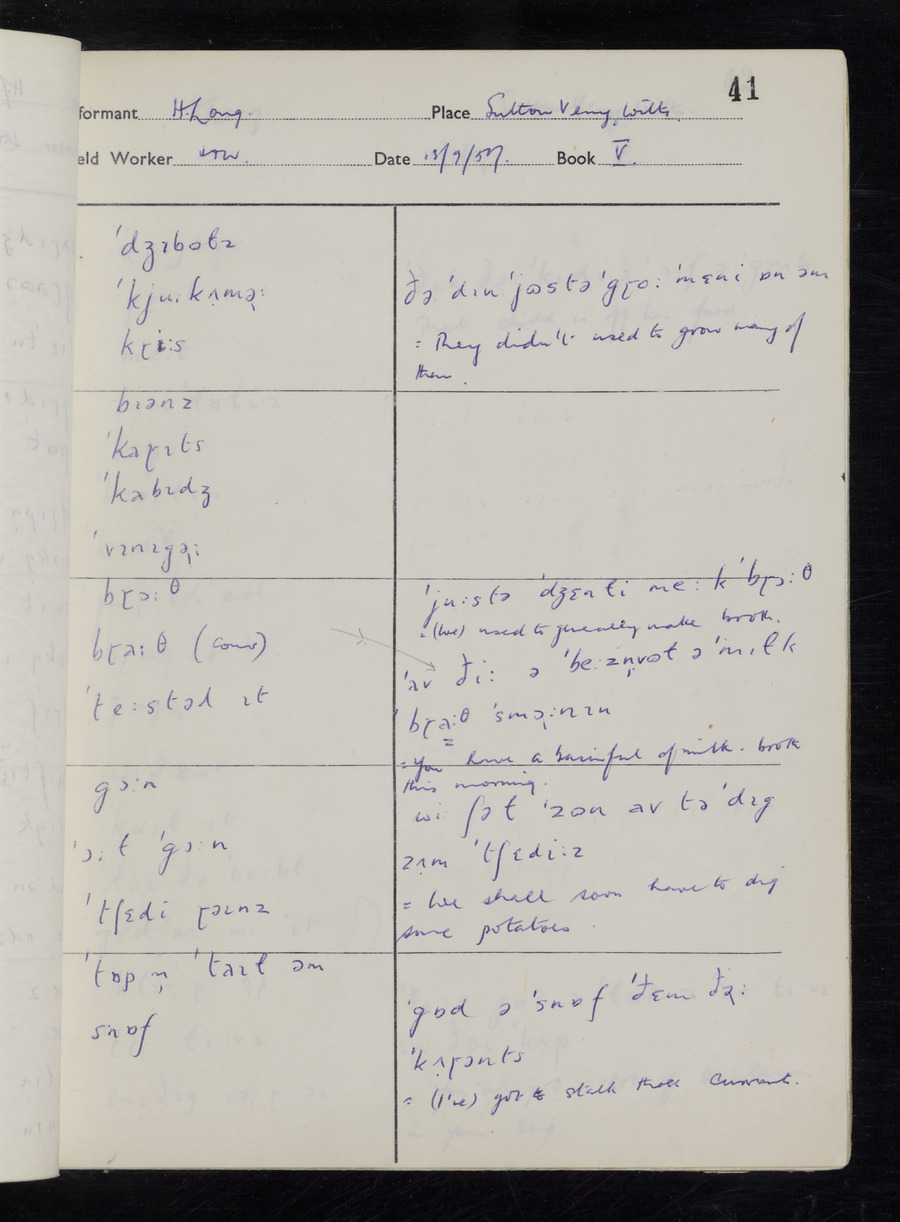 41
formant H. Long. Place Sutton Veny, Wilts.
eld Worker Date 13/9/57. Book V.
ˈdʒɪbəlz
ˈkjuːkʌməɽː
kɽiːs
ðə ˈdɪn ˈjəstə ˈgɽoː ˈmɛni ɒn əm
= They didn't used to grow many of
them.
bɪənz
ˈkaɽɪts
ˈkabɪdʒ
ˈvɪnɪgəɽː
bɽɔːθ
bɽaː θ (cows)
ˈteːstəd ɪt
ˈjuːstə ˈdʒɛnli meːk ˈbɽɔːθ
= (We) used to generally make broth.
ˈav ðiː ə ˈbeːznvət ə ˈmɪlk
ˈbɽaːθ ˈsməːnɪn
= You have a basinful of milk-broth
this morning.
gɔːn
ˈɔːl ˈgɔːn
ˈtʃɛdi ɽəɪnz
wi ʃət ˈzən av tə ˈdɪg
zʌm ˈtʃɛdiːz
= We shall soon have to dig
some potatoes.
ˈtɒp n̩ ˈtaɪl əm
snɒf
ˈgɒd ə ˈsnɒf ˈðɛm ðəː
ˈkʌɽənts
= (I've) got to stalk them currants.